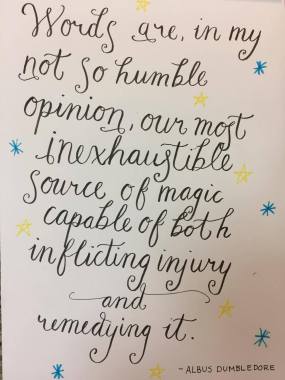 Words are, in my
not so humble
opinion, our most
inexhaustible
source of magic
capable of both
inflicting injury
and
remedying it.
- ALBUS DUMBLEDORE